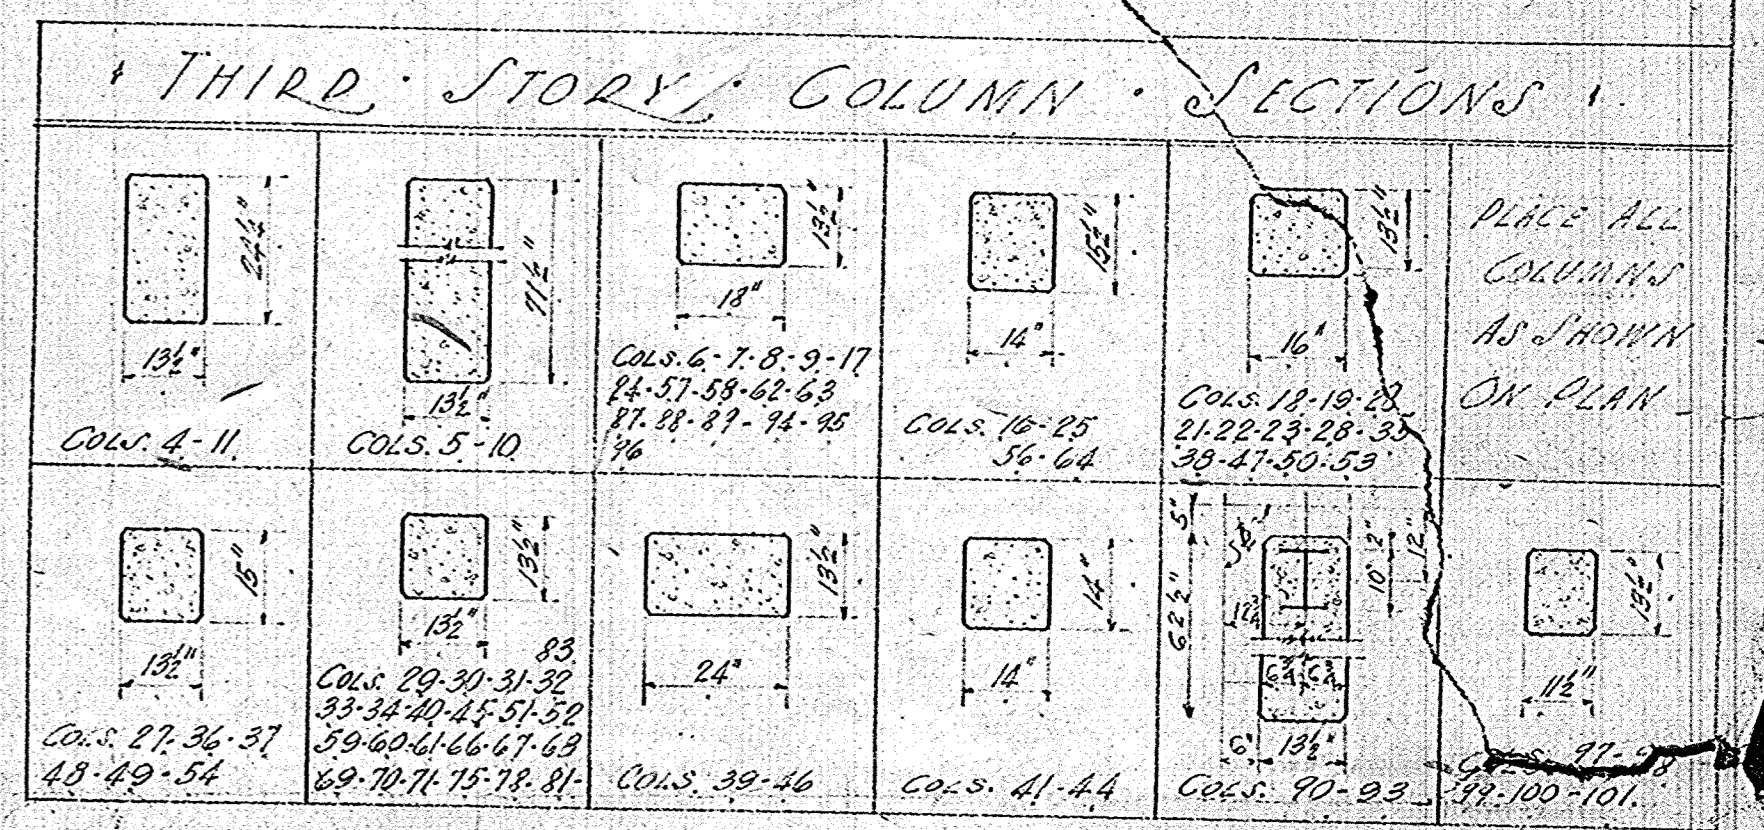 THIRD · STORY · COLUMN · SECTIONS
24 1/4"
13 1/2"
COLS. 4-11.
71 1/2"
13 1/2"
COLS. 5-10.
13 1/2"
18"
COLS. 6-7-8-9-17
24-57-58-62-63
87-88-89-94-95
96
15 1/2"
14"
COLS. 16-25
56-64
13 1/2"
16"
COLS. 18-19-20
21-22-23-28-35
38-47-50-53
PLACE ALL
COLUMNS
AS SHOWN
ON PLAN
15"
13 1/2"
COLS. 27-36-37
48-49-54
13 1/2"
13 1/2"
83.
COLS. 29-30-31-32
33-34-40-45-51-52
59-60-61-66-67-68
69-70-71-75-78-81-
13 1/2"
24"
COLS. 39-46
14"
14"
COLS. 41-44
5"
62 1/2"
2"
10"
12"
6"
13 1/2"
COLS. 90-93
13 1/2"
11 1/2"
COLS. 97-98
99-100-101.